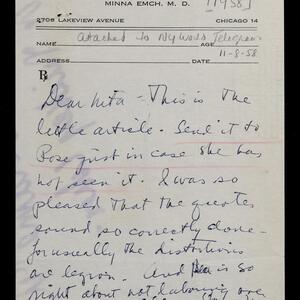 MINNA EMCH, M. D. [1958]
2706 LAKEVIEW AVENUE CHICAGO 14
NAME attached to NY World Telegram
AGE
ADDRESS DATE 11-8-58
℞
Dear Nita - This is the
little article. Send it to
Rose just in case she has
not seen it. I was so
pleased that the quotes
sound so correctly done -
for usually the distortions
are legion. And is so
right about not labouring over